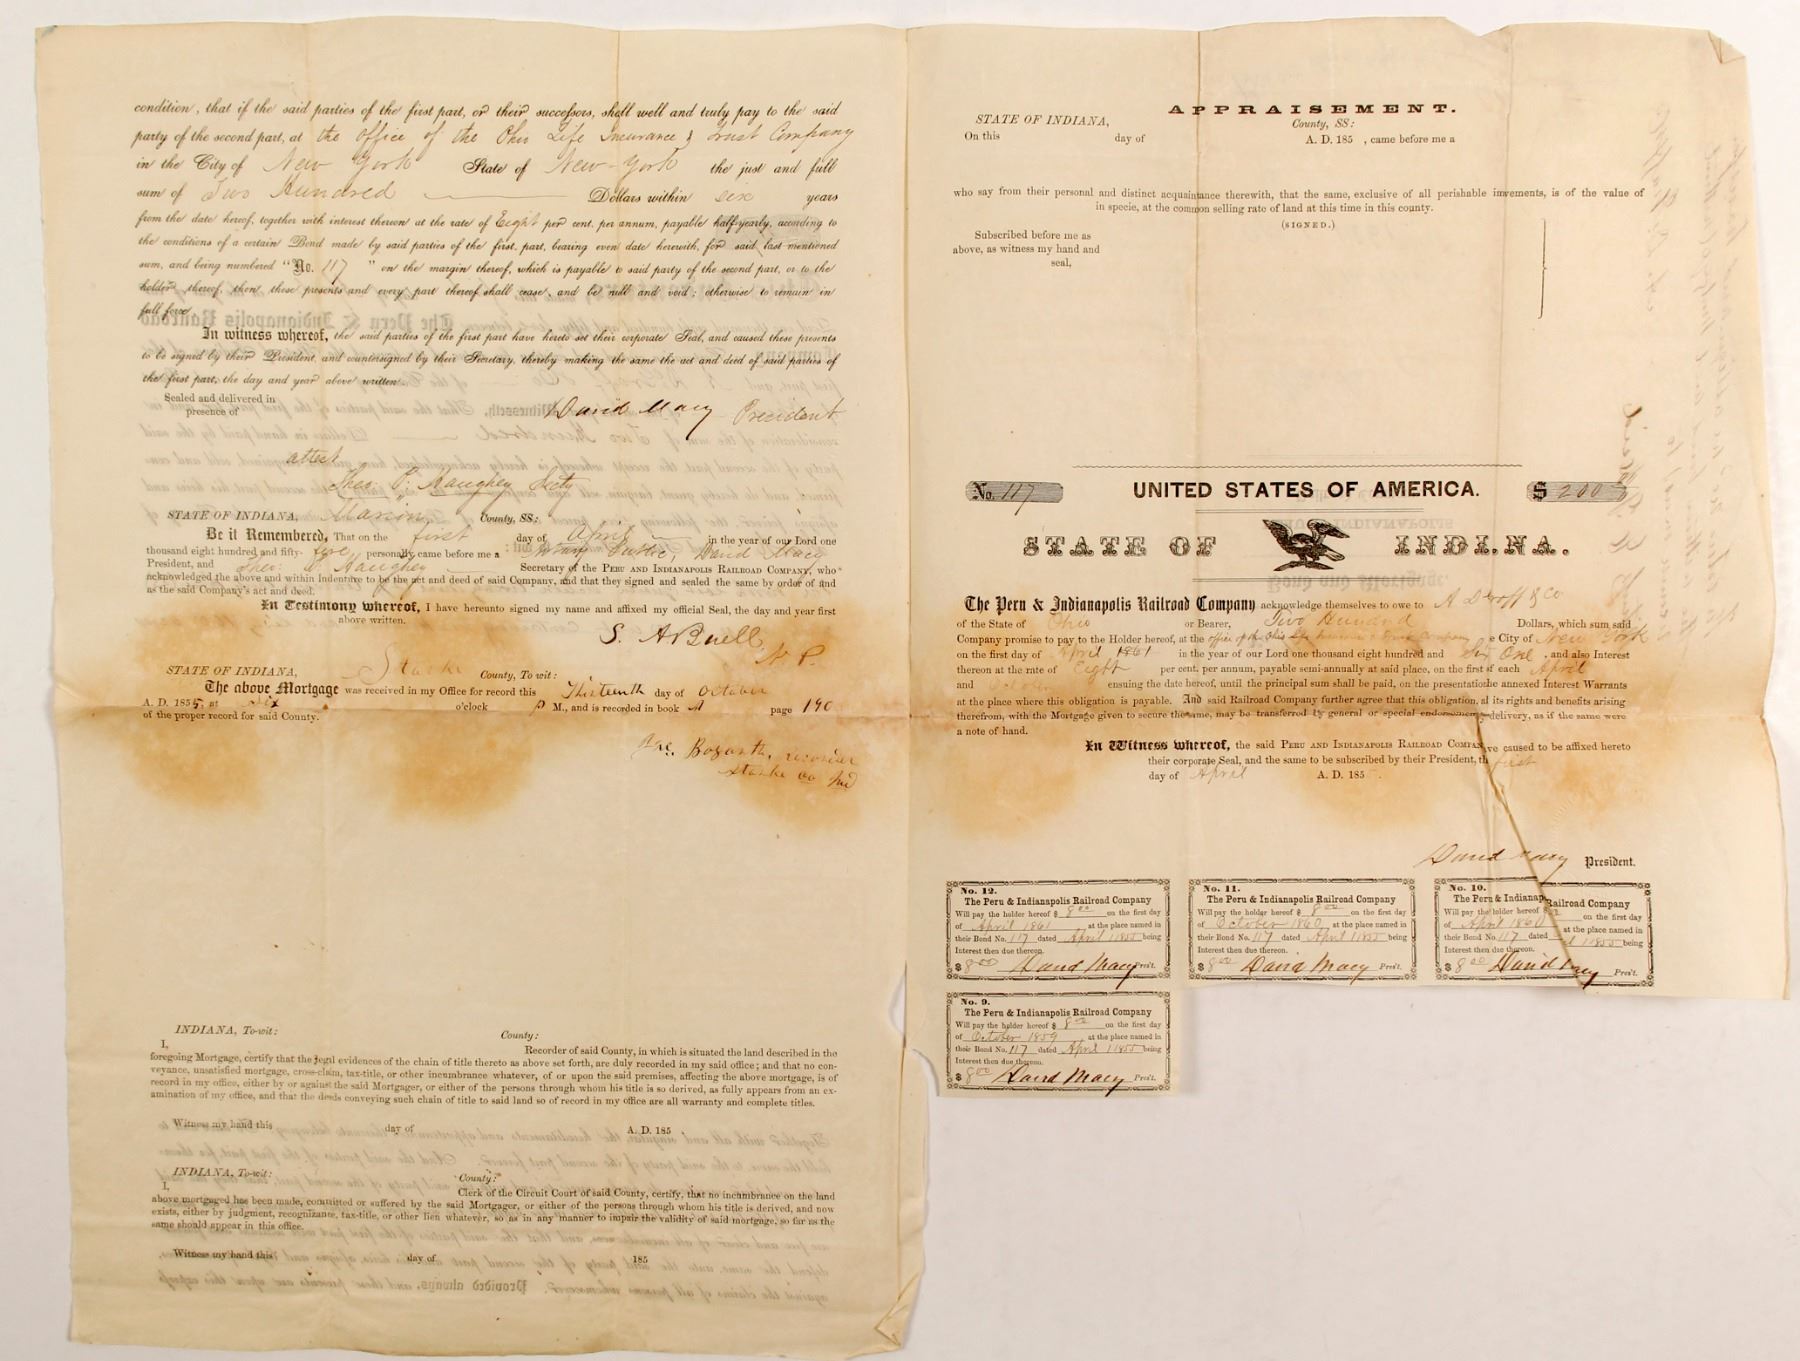 condition, that if the said parties of the first part, or their successors, shall well and truly pay to the said
party of the second part, at the office of the Ohio Life Insurance & Trust Company
in the City of New York State of New-York the just and full
sum of Two Hundred Dollars within six years
from the date hereof, together with interest thereon at the rate of Eight per cent. per annum, payable half-yearly, according to
the conditions of a certain Bond made by said parties of the first part, bearing even date herewith, for said last mentioned
sum, and being numbered "No. 117 " on the margin thereof, which is payable to said party of the second part, or to the
holder thereof, then these presents and every part thereof shall cease, and be null and void; otherwise to remain in
full force.
In witness whereof, the said parties of the first part have hereto set their corporate Seal, and caused these presents
to be signed by their President, and countersigned by their Secretary, thereby making the same the act and deed of said parties of
the first part, the day and year above written.
Sealed and delivered in
presence of
David Macy President
attest
Theo: P. Haughey Secty
STATE OF INDIANA, Marion County, SS:
Be it Remembered, That on the first day of April in the year of our Lord one
thousand eight hundred and fifty- five personally came before me a Notary Public, David Macy
President, and Theo: P. Haughey Secretary of the PERU AND INDIANAPOLIS RAILROAD COMPANY, who
acknowledged the above and within Indenture to be the act and deed of said Company, and that they signed and sealed the same by order of and
as the said Company's act and deed.
In Testimony whereof, I have hereunto signed my name and affixed my official Seal, the day and year first
above written.
S. A Buell
N P.
STATE OF INDIANA, Starke County, To wit:
The above Mortgage was received in my Office for record this Thirteenth day of October
A. D. 1855, at Six o'clock P M., and is recorded in book A page 190
of the proper record for said County.
Bozarth, recorder
Starke co Ind
INDIANA, To-wit: County:
I, Recorder of said County, in which is situated the land described in the
foregoing Mortgage, certify that the legal evidences of the chain of title thereto as above set forth, are duly recorded in my said office; and that no con-
veyance, unsatisfied mortgage, cross-claim, tax-title, or other incumbrance whatever, of or upon the said premises, affecting the above mortgage, is of
record in my office, either by or against the said Mortgager, or either of the persons through whom his title is so derived, as fully appears from an ex-
amination of my office, and that the deeds conveying such chain of title to said land so of record in my office are all warranty and complete titles.
Witness my hand this day of A. D. 185
INDIANA, To-wit: County:
I, Clerk of the Circuit Court of said County, certify, that no incumbrance on the land
above mortgaged has been made, committed or suffered by the said Mortgager, or either of the persons through whom his title is derived, and now
exists, either by judgment, recognizance, tax-title, or other lien whatever, so as in any manner to impair the validity of said mortgage, so far as the
same should appear in this office.
Witness my hand this day of 185
APPRAISEMENT.
STATE OF INDIANA, County, SS:
On this day of A. D. 185 , came before me a
who say from their personal and distinct acquaintance therewith, that the same, exclusive of all perishable imvements, is of the value of
in specie, at the common selling rate of land at this time in this county.
(SIGNED.)
Subscribed before me as
above, as witness my hand and
seal,
No. 117 UNITED STATES OF AMERICA. $ 200
STATE OF INDI.NA.
The Peru & Indianapolis Railroad Company acknowledge themselves to owe to A DGroff & Co
of the State of Ohio or Bearer, Two Hundred Dollars, which sum said
Company promise to pay to the Holder hereof, at the office of the Ohio Life Insurance & Trust Company e City of New York
on the first day of April 1861 in the year of our Lord one thousand eight hundred and Sixty One, and also Interest
thereon at the rate of Eight per cent. per annum, payable semi-annually at said place, on the first of each April
and October ensuing the date hereof, until the principal sum shall be paid, on the presentation he annexed Interest Warrants
at the place where this obligation is payable. And said Railroad Company further agree that this obligation, al its rights and benefits arising
therefrom, with the Mortgage given to secure the same, may be transferred by general or special endorsement delivery, as if the same were
a note of hand.
In Witness whereof, the said PERU AND INDIANAPOLIS RAILROAD COMPAN ve caused to be affixed hereto
their corporate Seal, and the same to be subscribed by their President, th first
day of April A. D. 185
David Macy President.
No. 12.
The Peru & Indianapolis Railroad Company
Will pay the holder hereof $ 8 00 on the first day
of April 1861 at the place named in
their Bond No. 117 dated April 1 1855 being
Interest then due thereon.
$ 8 00 David Macy Pres't.
No. 11.
The Peru & Indianapolis Railroad Company
Will pay the holder hereof $ 8 00 on the first day
of October 1860 at the place named in
their Bond No. 117 dated April 1 1855 being
Interest then due thereon.
$ 8 00 David Macy Pres't.
No. 10.
The Peru & Indianap Railroad Company
Will pay the holder hereof $ on the first day
of April 1860 at the place named in
their Bond No. 117 dated l 1 1855 being
Interest then due thereon.
$ 8 00 David Macy Pres't.
No. 9.
The Peru & Indianapolis Railroad Company
Will pay the holder hereof $ 8 00 on the first day
of October 1859 at the place named in
their Bond No. 117 dated April 1 1855 being
Interest then due thereon.
$ 8 00 David Macy Pres't.